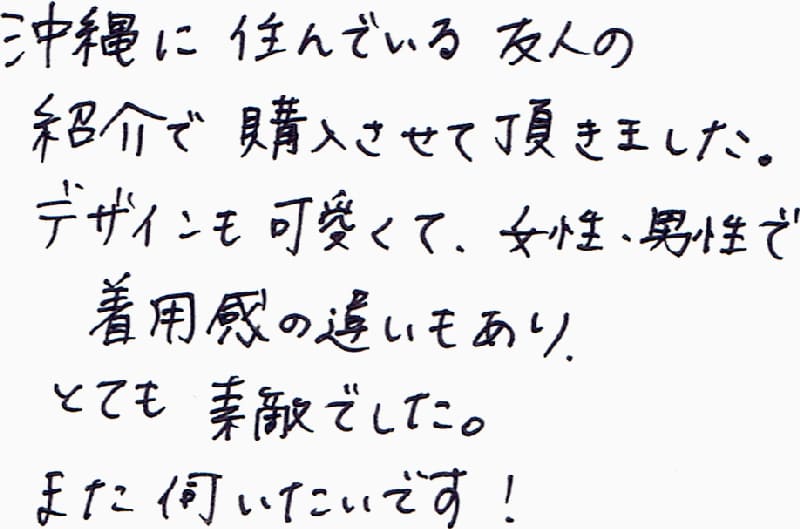 沖縄に住んでいる友人の
紹介で購入させて頂きました。
デザインも可愛くて、女性、男性で
着用感の違いもあり、
とても素敵でした。
また伺いたいです!